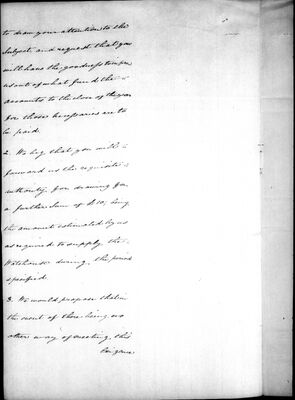 to draw your attention to the
subject and request that you
will have the goodness to inform
us out of what fund the
accounts to the close of the year
for those necessaries are to
be paid.
2. We beg that you will
forward us the requisite
authority for drawing for
a further sum of being
the amount estimated by us
as required to supply the
during the period
specified.
3. We would propose that in
the event of there being no
other way of meeting this